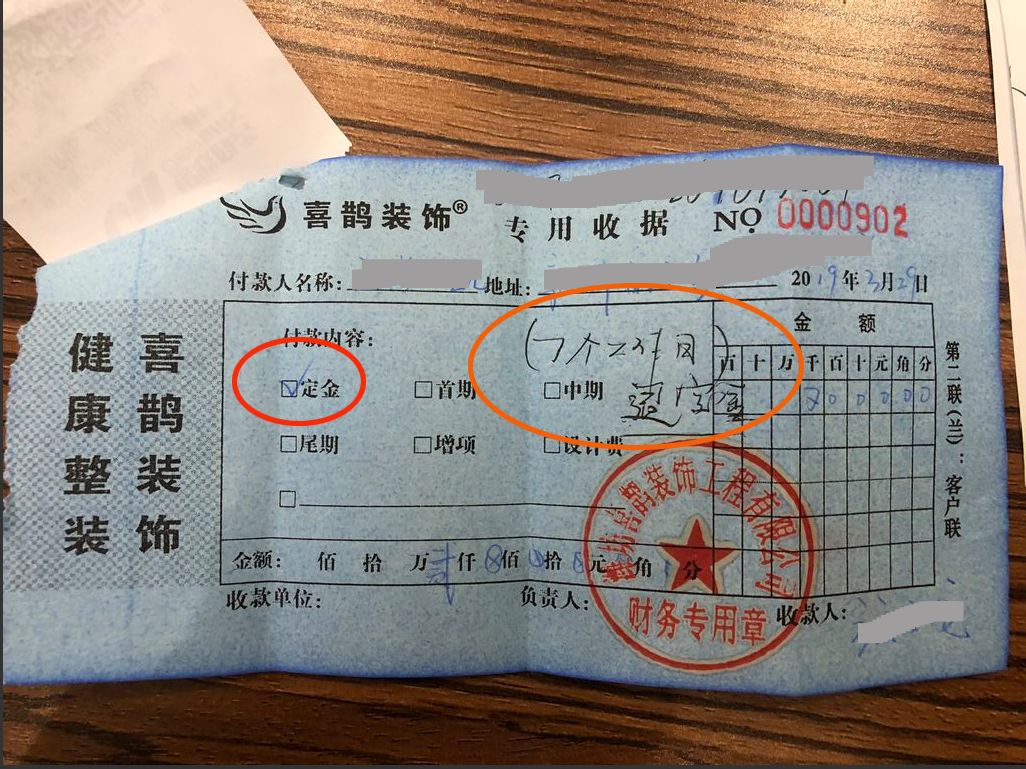 喜鹊装饰®
专用收据 NO 0000902
付款人名称: 地址: 2019年3月29日
喜鹊装饰
健康整装
付款内容:
(7个工作日)
退定金
☑定金 □首期 □中期
□尾期 □增项 □设计费
□
金额
百十万千百十元角分
2000000
金额: 佰 拾 万贰仟⊗佰 拾 元 角 分
收款单位: 负责人: 收款人:
喜鹊装饰工程有限公司
财务专用章
第二联(兰):客户联